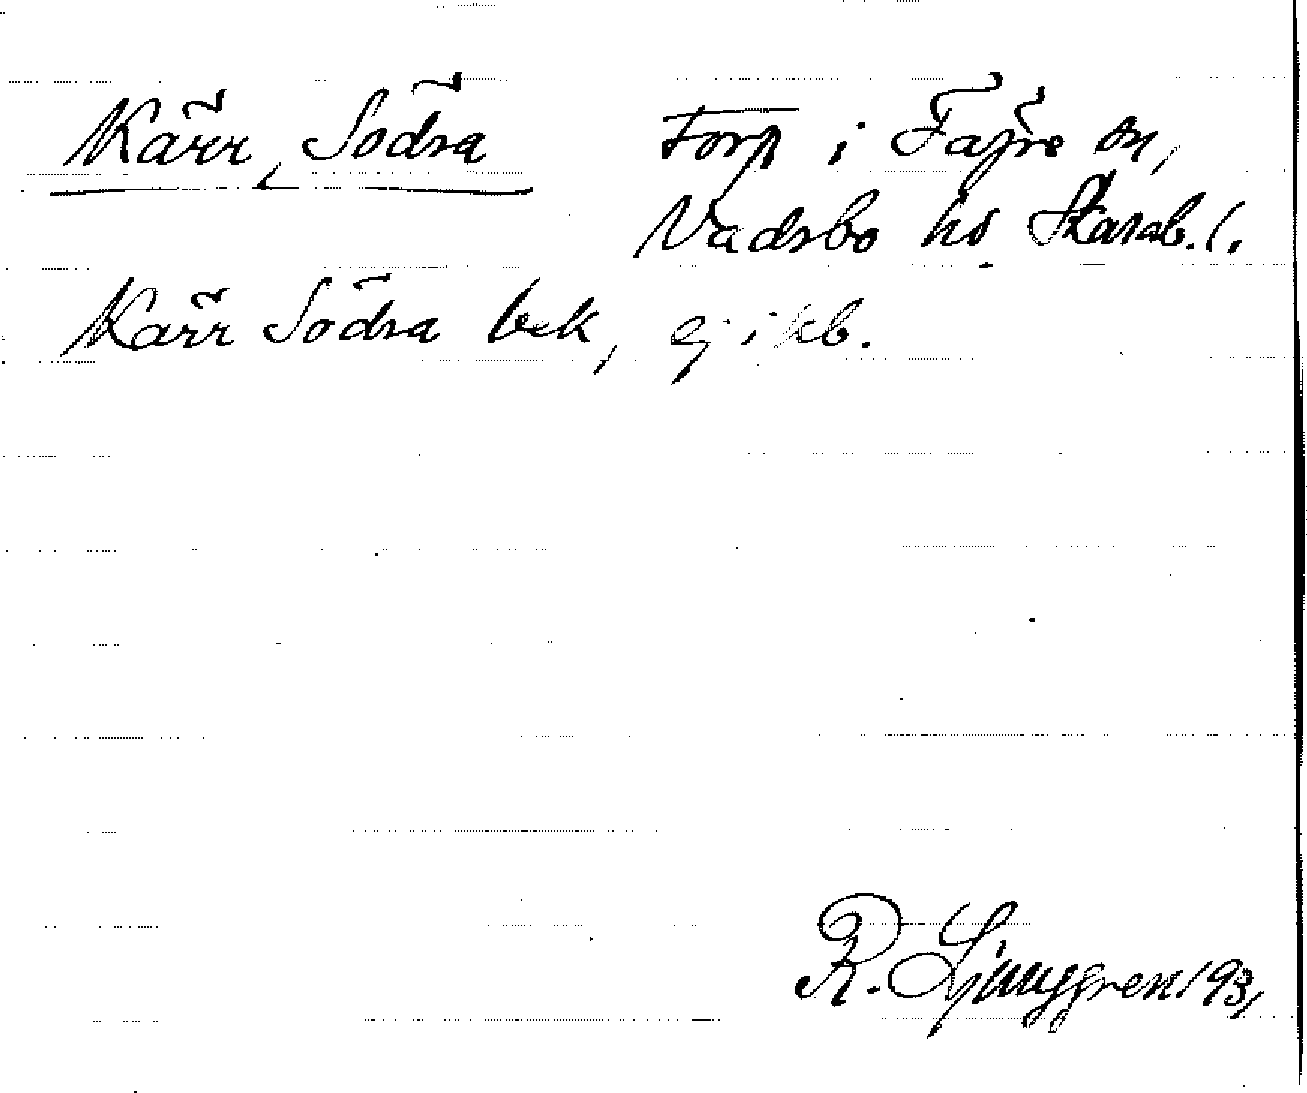 Kärr, Södra Torp i Fägre sn,
Vadsbo hd Skarab. l.
Kärr Södra bek, ej i kb.
R. Ljunggren 1931